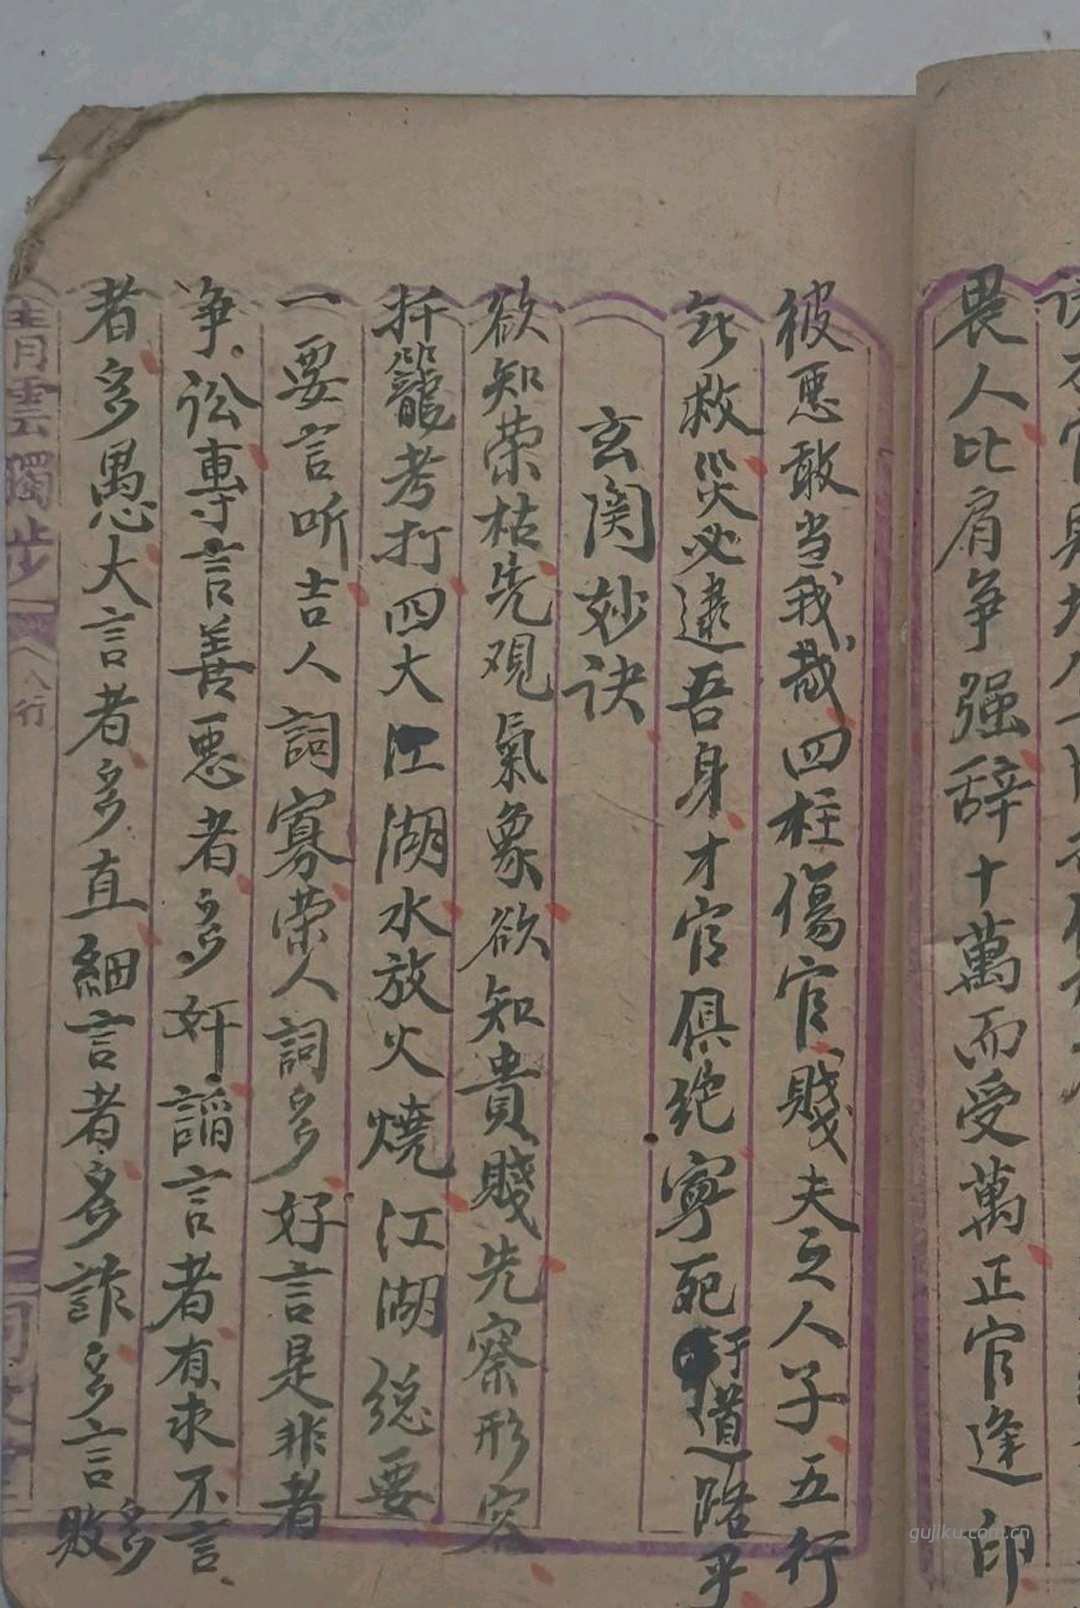 畏人比肩争强辞十萬而受萬正官逢印
彼恶敢当我哉四柱傷官賤夫之人子五行
救災必逮吾身才官俱绝寧死于道路乎
玄関妙诀
欲知荣枯先观氣象欲知貴賤先察形容
扦籠考打四大江湖水放火燒江湖總要
一要言听吉人詞寡荣人詞多好言是非者
争讼專言善恶者多奸謟言者有求不言
者多愚大言者多直細言者多詐多言多敗
青雲獨步
八行
gujiku.com.cn